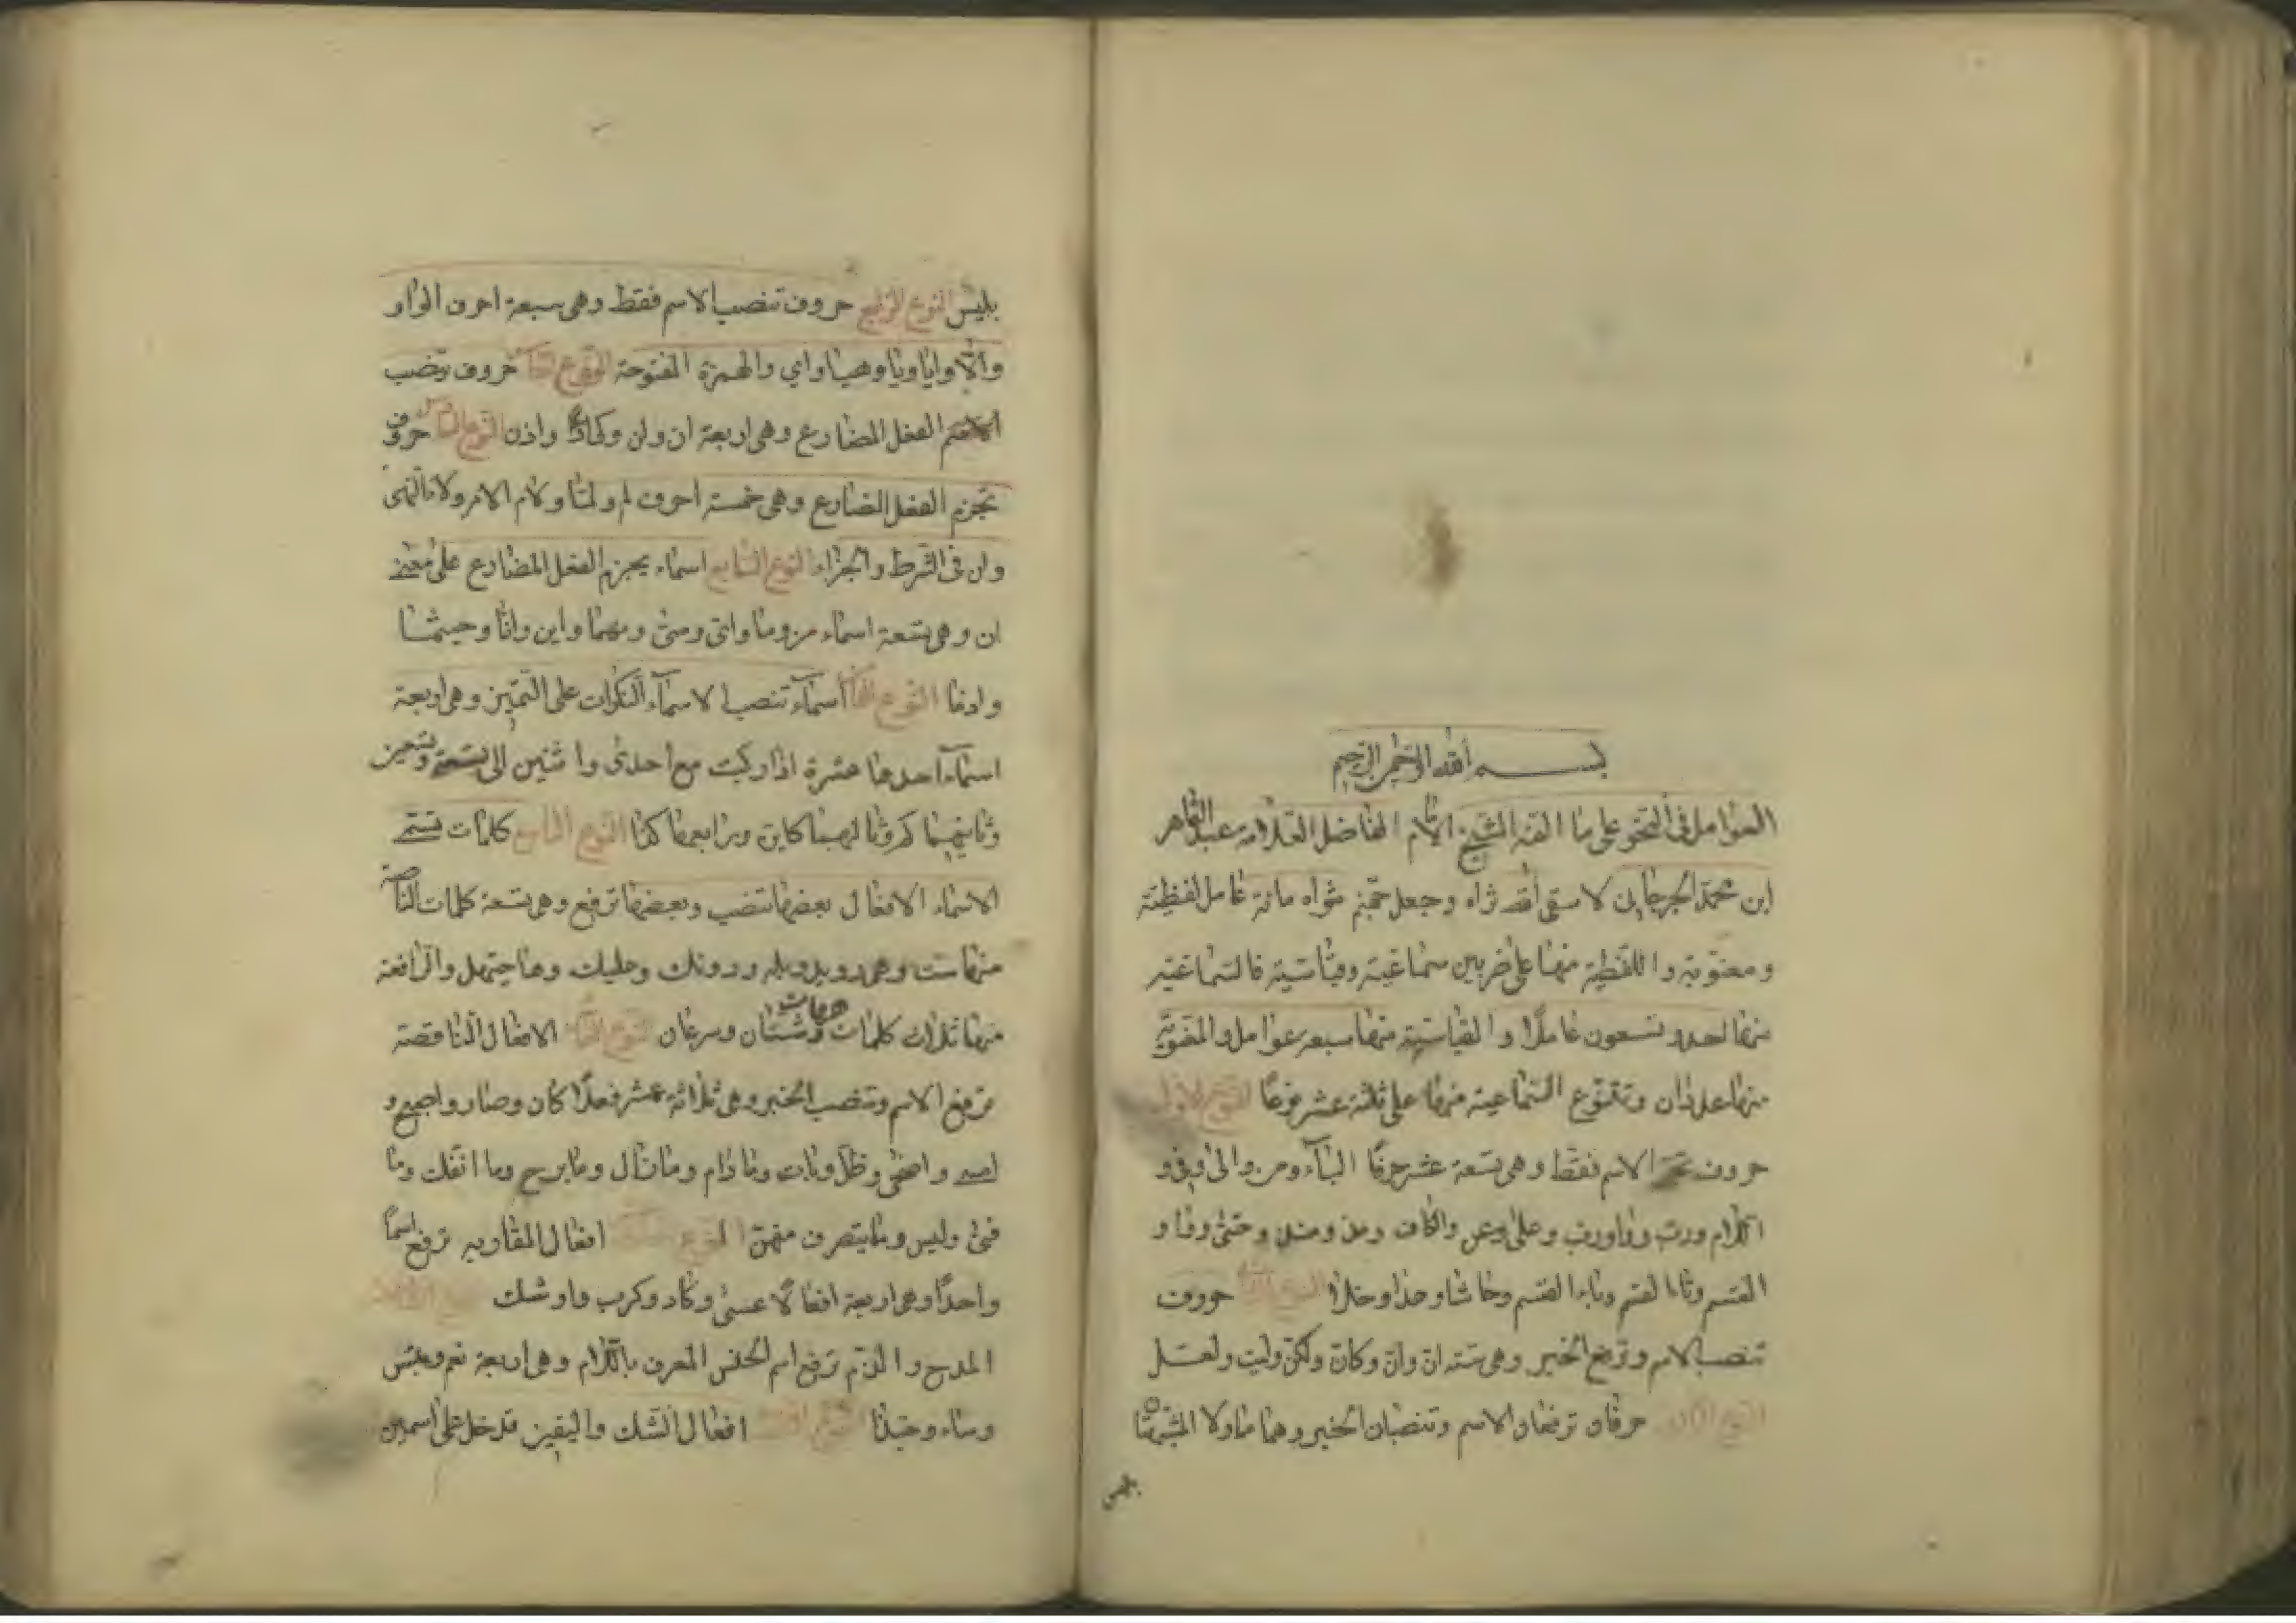 بسم الله الرحمن الرحيم
العوامل في النحو على ما الفه الشيخ الامام الفاضل العلامة عبد القاهر
ابن محمد الجرجاني لا سقى الله ثراه وجعل جهنم مثواه مائة عامل لفظية
ومعنوية واللفظية منها على ضربين سماعية وقياسية فالسماعية
منها احد وتسعون عاملا والقياسية منها سبعة عوامل والمعنوية
منها عددان وتتنوع السماعية منها على ثلثة عشر نوعا النوع الاول
حروف تجر الاسم فقط وهي تسعة عشر حرفا الباء ومن والى وفي و
اللام ورب وواو رب وعلى وعن والكاف ومذ ومنذ وحتى وواو
القسم وتاء القسم وباء القسم وحاشا وعدا وخلا النوع الثاني حروف
تنصب الاسم وترفع الخبر وهي ستة ان وان وكان ولكن وليت ولعل
النوع الثالث حرفان ترفعان الاسم وتنصبان الخبر وهما ما ولا المشبهتان
بليس
بليس النوع الرابع حروف تنصب الاسم فقط وهي سبعة احرف الواو
والا وايا ويا وهيا واي والهمزة المفتوحة النوع الخامس حروف تنصب
الفعل المضارع وهي اربعة ان ولن وكي واذن النوع السادس حروف
تجزم الفعل المضارع وهي خمسة احرف لم ولما ولام الامر ولاء النهى
وان في الشرط والجزاء النوع السابع اسماء يجزم الفعل المضارع على معنى
ان وهي تسعة اسماء من وما واي ومتى ومهما واين وانا وحيثما
واذما النوع الثامن اسماء تنصب الاسماء النكرات على التمييز وهي اربعة
اسماء احدها عشرة اذا ركبت مع احدى واثنين الى تسعة وتسعين
وثانيهما كم وثالثهما كاين ورابعها كذا النوع التاسع كلمات تسمى
الاسماء الافعال بعضها تنصب وبعضها ترفع وهي تسعة كلمات الناصبة
منها ست وهي رويد وبله ودونك وعليك وها وحيهل والرافعة
منها ثلاث كلمات هيهات وشتان وسرعان النوع العاشر الافعال الناقصة
ترفع الاسم وتنصب الخبر وهي ثلاثة عشر فعلا كان وصار واصبح و
امسى واضحى وظل وبات وما دام وما زال وما برح وما انفك وما
فتئ وليس وما يتصرف منهن النوع افعال المقاربه ترفع اسما
واحدا وهي اربعة افعالا عسى وكاد وكرب واوشك
المدح والذم ترفع اسم الجنس المعرف باللام وهي اربعة نعم وبئس
وساء وحبذا افعال الشك واليقين تدخل على اسمين